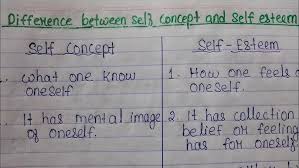 Difference between self concept and self esteem
Self Concept
Self-Esteem
what one know
oneself
1. How one feels a
oneself.
It has mental image
of oneself.
2. It has collection
belief or feeling
has for onesel